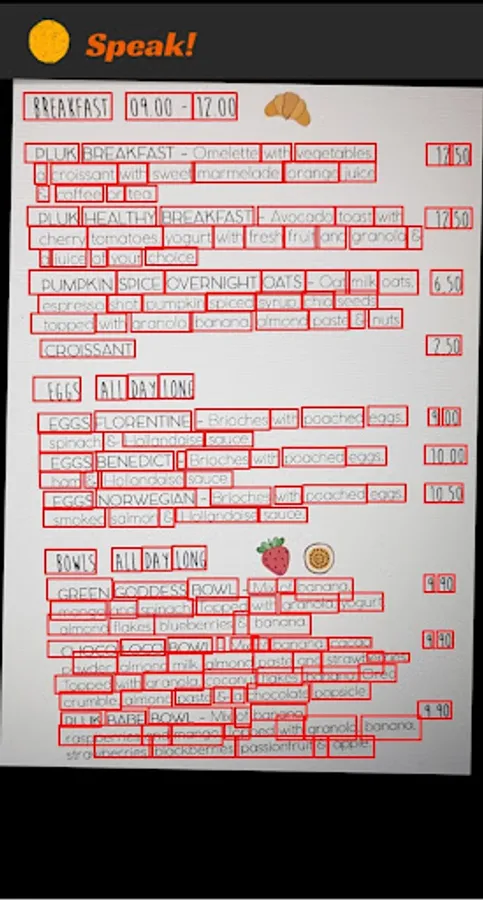 Speak!
BREAKFAST 09.00 - 12.00
PLUK BREAKFAST - Omelette with vegetables, 12.50
a croissant with sweet marmelade, orange juice
& coffee or tea.
PLUK HEALTHY BREAKFAST - Avocado toast with 12.50
cherry tomatoes, yogurt with fresh fruit and granola &
a juice of your choice.
PUMPKIN SPICE OVERNIGHT OATS - Oat milk oats, 6.50
espresso shot, pumpkin spiced syrup, chia seeds
topped with granola, banana, almond paste & nuts
CROISSANT 2.50
EGGS ALL DAY LONG
EGGS FLORENTINE - Brioches with poached eggs, 9.00
spinach & Hollandaise sauce.
EGGS BENEDICT - Brioches with poached eggs, 10.00
ham & Hollandaise sauce.
EGGS NORWEGIAN - Brioches with poached eggs, 10.50
smoked salmon & Hollandaise sauce.
BOWLS ALL DAY LONG
GREEN GODDESS BOWL - Mix of banana, 9.90
mango and spinach. Topped with granola, yogurt,
almond flakes, blueberries & banana.
CHOCO LOCO BOWL - Mix of banana, cacao 9.90
powder, almond milk, almond paste and strawberries.
Topped with granola, coconut flakes, banana, Oreo
crumble, almond paste & a chocolate popsicle.
PLUK BABE BOWL - Mix of banana, 9.90
raspberries and mango. Topped with granola, banana,
strawberries, blackberries, passionfruit & apple.